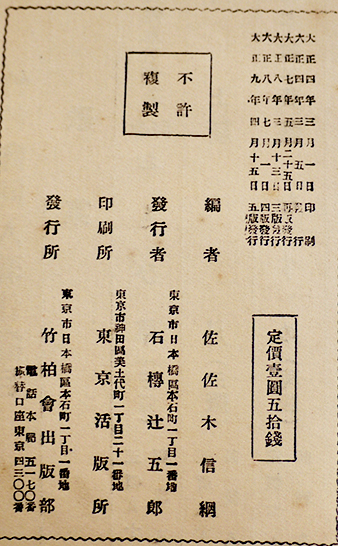 大正四年三月一日印刷
大正四年三月五日發行
大正七年五月二十五日再版發行
大正八年三月十三日三版發行
大正九年四月十五日五版發行
定價壹圓五拾錢
不許
複製
編者 佐佐木信綱
東京市日本橋區本石町一丁目一番地
發行者 石榑辻五郎
東京市神田區美土代町二丁目一番地
印刷所 東京活版所
東京市日本橋區本石町一丁目一番地
發行所 竹柏會出版部
電話本局五一七〇番
振替口座東京四三〇〇番